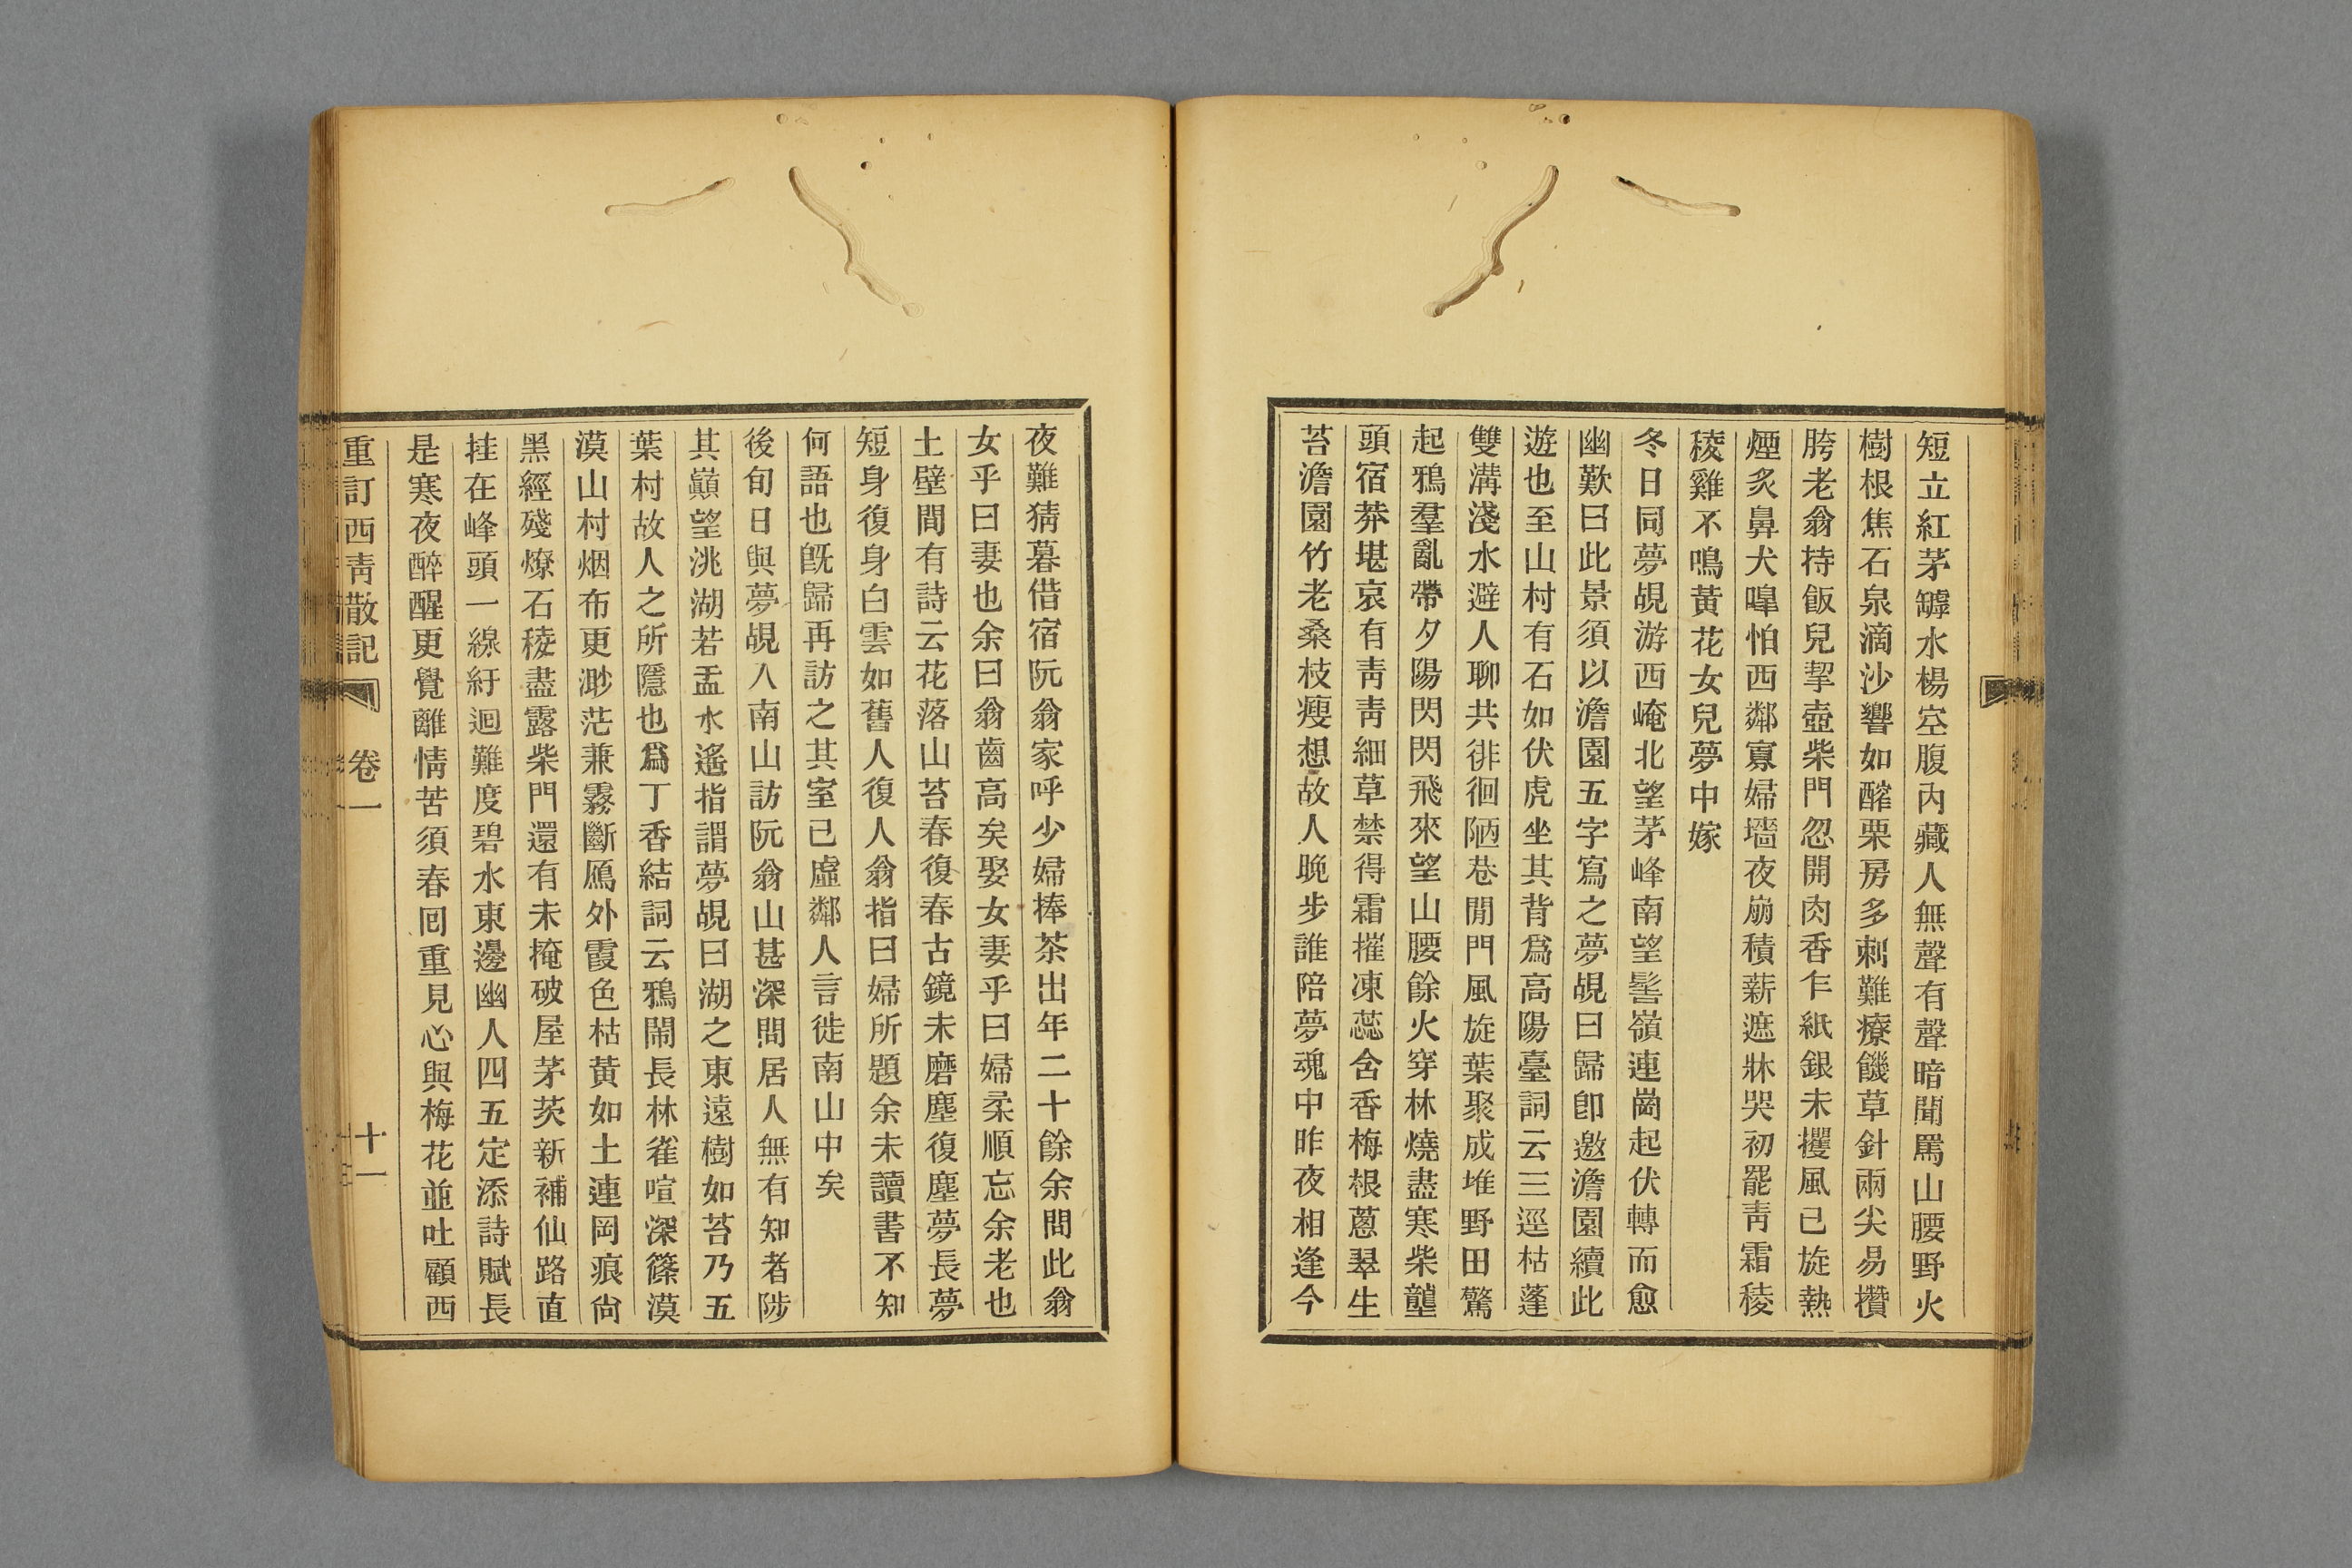 短立紅茅罅水楊空腹內藏人無聲有聲暗聞罵山腰野火
樹根焦石泉滴沙響如醡栗房多刺難療饑草針兩尖易攢
胯老翁持飯兒挈壺柴門忽開肉香乍紙銀未攫風已旋熱
煙炙鼻犬嘷怕西鄰寡婦墻夜崩積薪遮牀哭初罷靑霜稜
稜雞不鳴黃花女兒夢中嫁
冬日同夢覘游西崦北望茅峰南望髻嶺連崗起伏轉而愈
幽歎曰此景須以澹園五字寫之夢覘曰歸卽邀澹園續此
遊也至山村有石如伏虎坐其背爲高陽臺詞云三逕枯蓬
雙溝淺水避人聊共徘徊陋巷閒門風旋葉聚成堆野田驚
起鴉羣亂帶夕陽閃閃飛來望山腰餘火穿林燒盡寒柴壟
頭宿莽堪哀有靑靑細草禁得霜摧凍蕊含香梅根蔥翠生
苔澹園竹老桑枝瘦想故人晚步誰陪夢魂中昨夜相逢今
夜難猜暮借宿阮翁家呼少婦捧茶出年二十餘余問此翁
女乎曰妻也余曰翁齒高矣娶女妻乎曰婦柔順忘余老也
土壁間有詩云花落山苔春復春古鏡未磨塵復塵夢長夢
短身復身白雲如舊人復人翁指曰婦所題余未讀書不知
何語也旣歸再訪之其室已虛鄰人言徙南山中矣
後旬日與夢覘入南山訪阮翁山甚深問居人無有知者陟
其巓望洮湖若盂水遙指謂夢覘曰湖之東遠樹如苔乃五
葉村故人之所隱也爲丁香結詞云鴉鬧長林雀喧深篠漠
漠山村烟布更渺茫兼霧斷鴈外霞色枯黃如土連岡痕尙
黑經殘燎石稜盡露柴門還有未掩破屋茅茨新補仙路直
挂在峰頭一線紆迴難度碧水東邊幽人四五定添詩賦長
是寒夜醉醒更覺離情苦須春回重見心與梅花並吐顧西
重訂西靑散記 卷一 十一